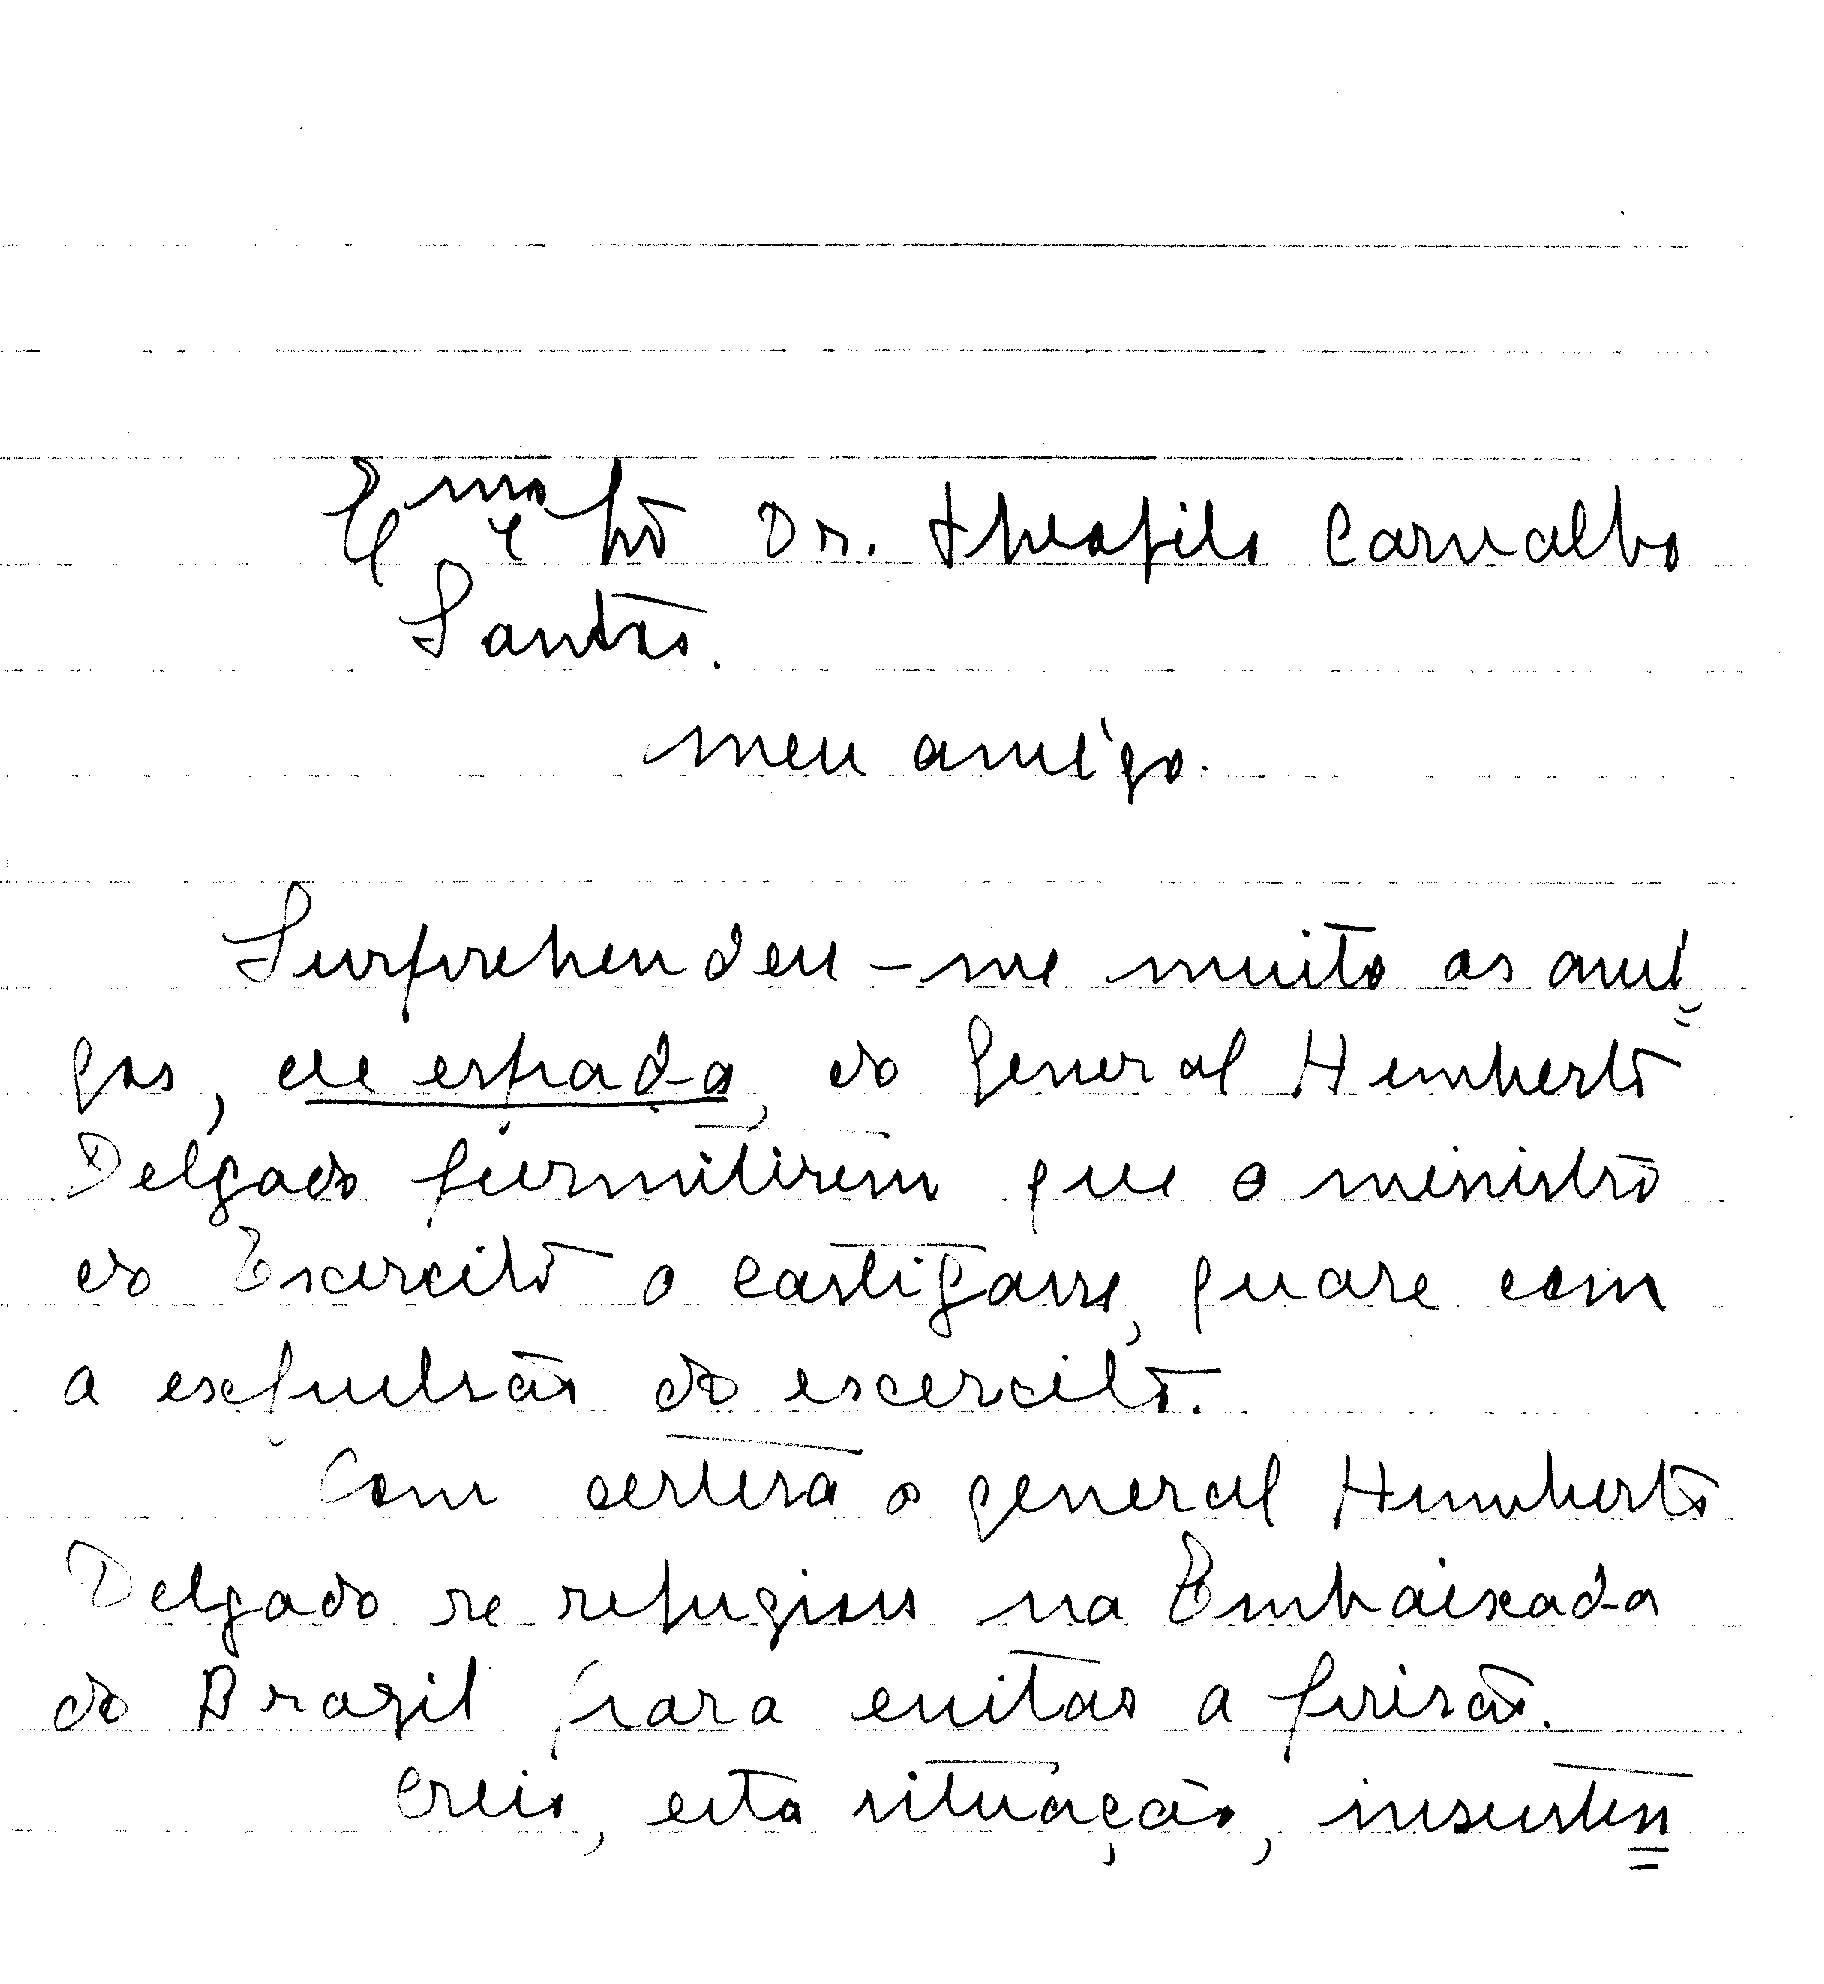 Exmo Sr Dr. Theofilo Carvalho
Santos.
meu amigo.
Surprehendeu-me muito os ami=
gos, de espada, do General Humberto
Delgado permitirem que o ministro
do Exercito o castigasse, quase com
a expulsão do exercito.
Com certesa o general Humberto
Delgado se refugiou na Embaixada
do Brazil para evitar a prisão.
Creio, esta situação, insusten=